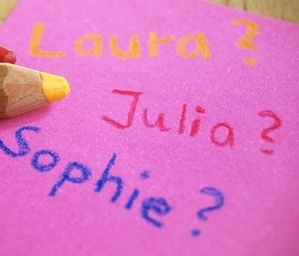 Laura ?
Julia ?
Sophie ?